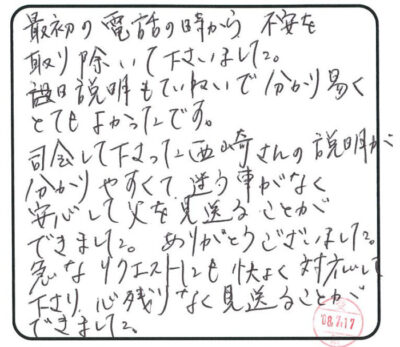 最初の電話の時から 不安を
取り除いて下さいました。
説明もていねいで分かり易く
とてもよかったです。
司会して下さった西崎さんの説明が
分かりやすくて、迷う事がなく
安心して父を見送ることが
できました。 ありがとうございました。
急なリクエストにも快よく対応して
下さり、心残りなく見送ることが
できました。
08.7.17